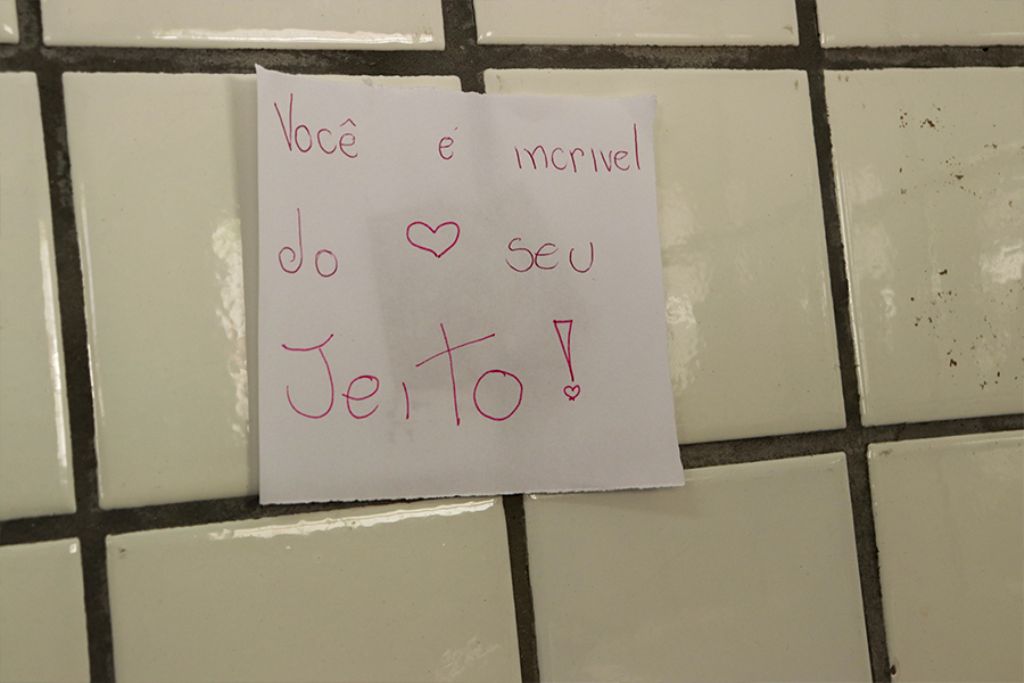 Você é incrivel
do ♡ seu
Jeito!